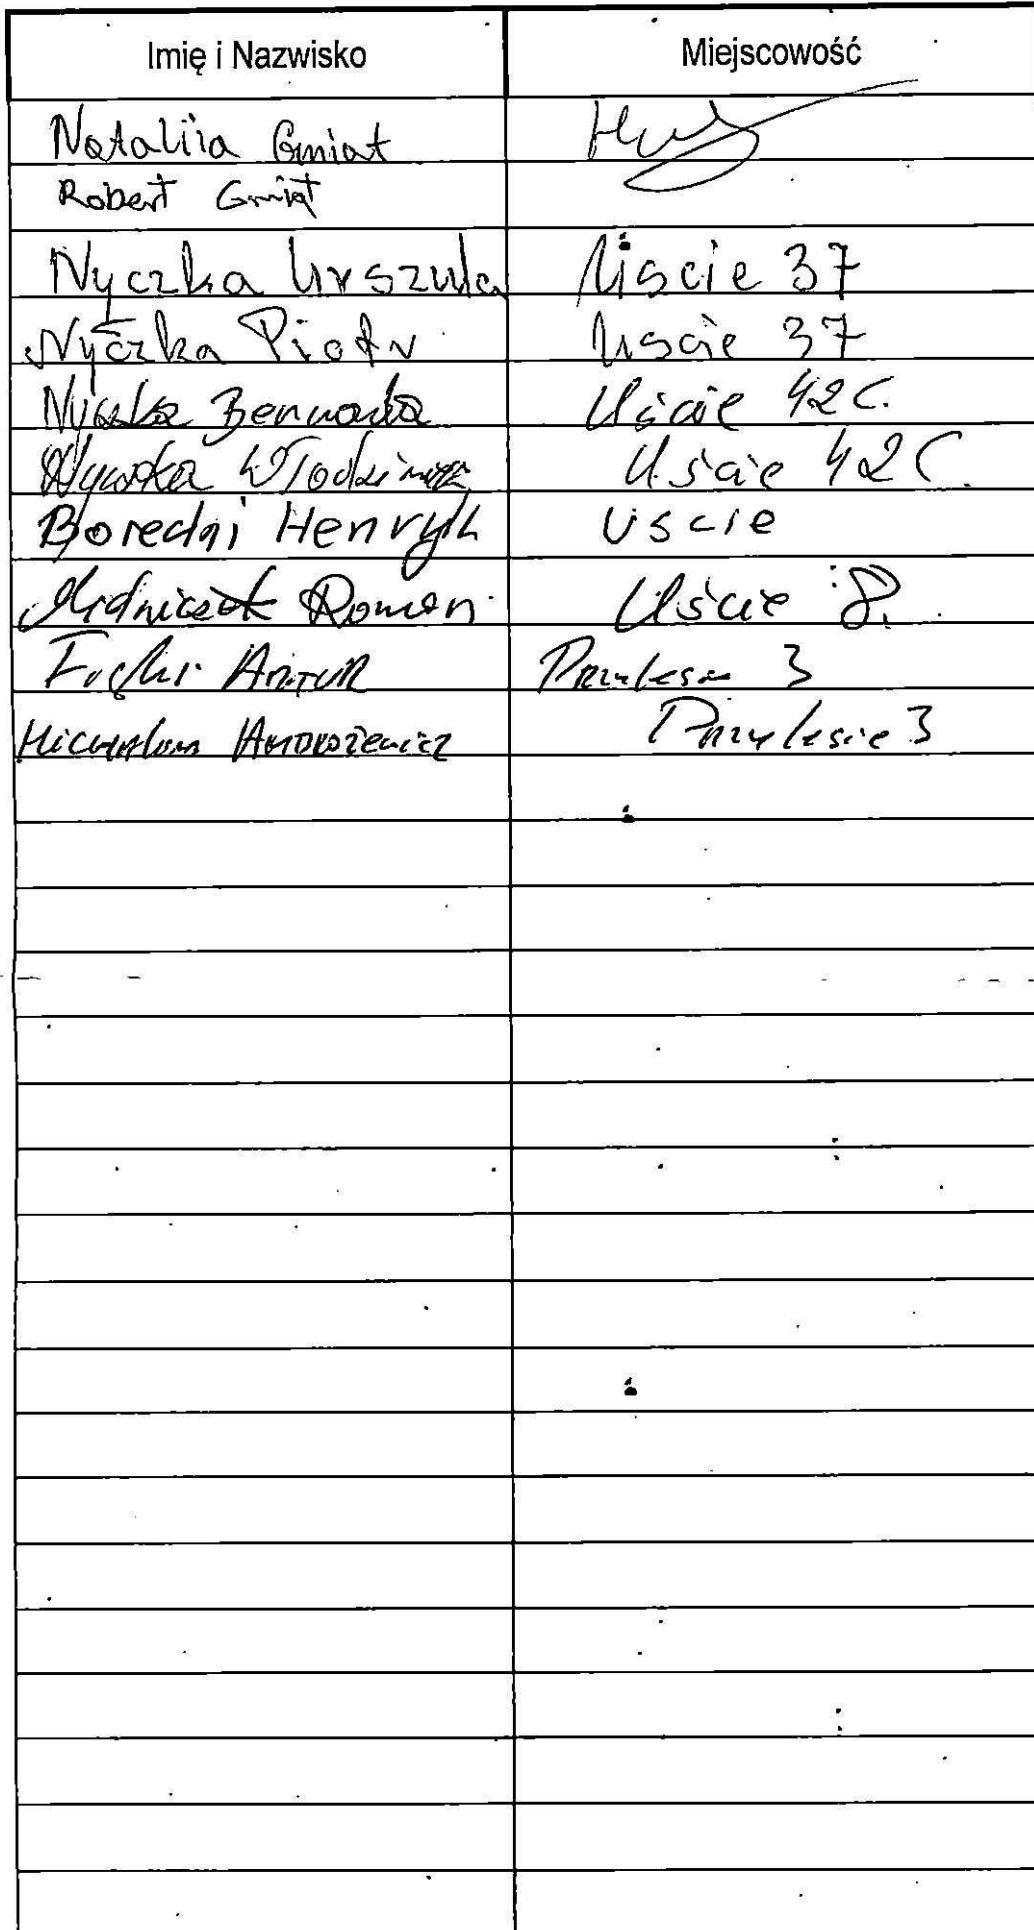 Imię i Nazwisko Miejscowość
Nataliia Gmiat
Robert Gmiat
Nyczka Urszula Uście 37
Nyczka Piotr Uście 37
Nyczka Uście 42C.
Nyczka Włodzimierz Uście 42C
Borecki Henryk Uście
Roman Uście 8.
Artur Przylesie 3
Przylesie 3